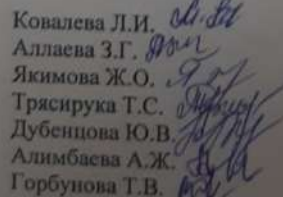 Ковалева Л.И.
Аллаева З.Г.
Якимова Ж.О.
Трясирука Т.С.
Дубенцова Ю.В.
Алимбаева А.Ж.
Горбунова Т.В.